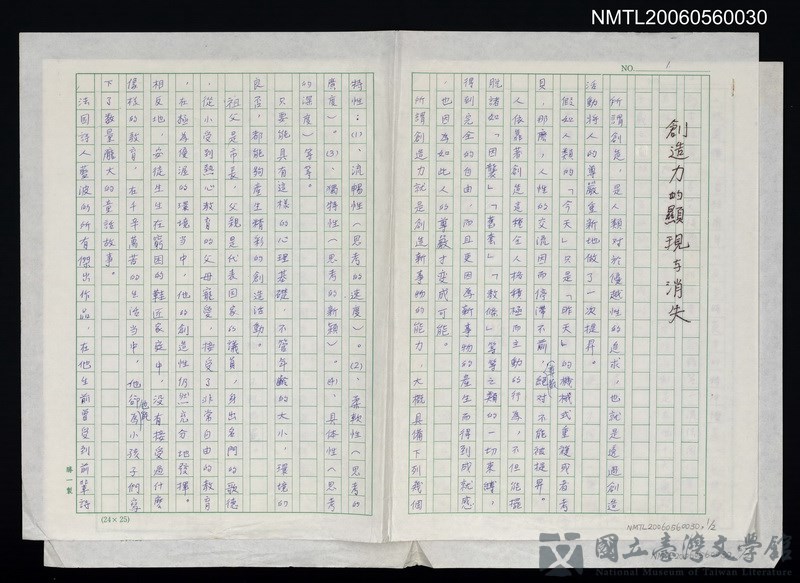 NMTL20060560030
NO. 1
創造力的顯現與消失
所謂創造，是人類對於優越性的追求，也就是透過創造
活動將人的尊嚴重新地做了一次提昇。
假如人類的「今天」只是「昨天」的機械式重複或者考
貝，那麼，人性的交流因而停滯不前，尊嚴絕對不能被提昇。
人依靠著創造是種全人格積極而主動的行為，不但能擺
脫諸如「因襲」「舊套」「教條」等等之類的一切束縛，
得到完全的自由，而且更因為新事物的產生而得到成就感
，也因為如此人的尊嚴才變成可能。
所謂創造力就是創造新事物的能力，大概具備下列幾個
特性：(1)、流暢性（思考的速度）。(2)、柔軟性（思考的
廣度）。(3)、獨特性（思考的新穎）。(4)、具体性（思考
的深度）等等。
只要能具有這樣的心理基礎，不管年齡的大小，環境的
良否，都能夠產生精彩的創造活動。
祖父是市長，父親是代表國家的議員，身出名門的歌德
，從小受到熱心教育的父母寵愛，接受了非常自由的教育
，在極為優渥的環境當中，他的創造性仍然充分地發揮。
相反地，安徒生生在窮困的鞋匠家庭中，沒有接受過什麼
像樣的教育，在千辛萬苦的生活當中，他卻能為小孩子們寫
下了數量龐大的童話故事。
法國詩人藍波的所有傑出作品，在他生前曾受到前輩詩
(24×25)
NMTL20060560030, 1/2
國立臺灣文學館
National Museum of Taiwan Literature